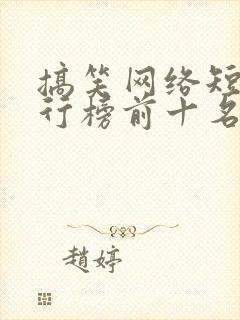 搞笑网络短
行榜前十名
赵婷